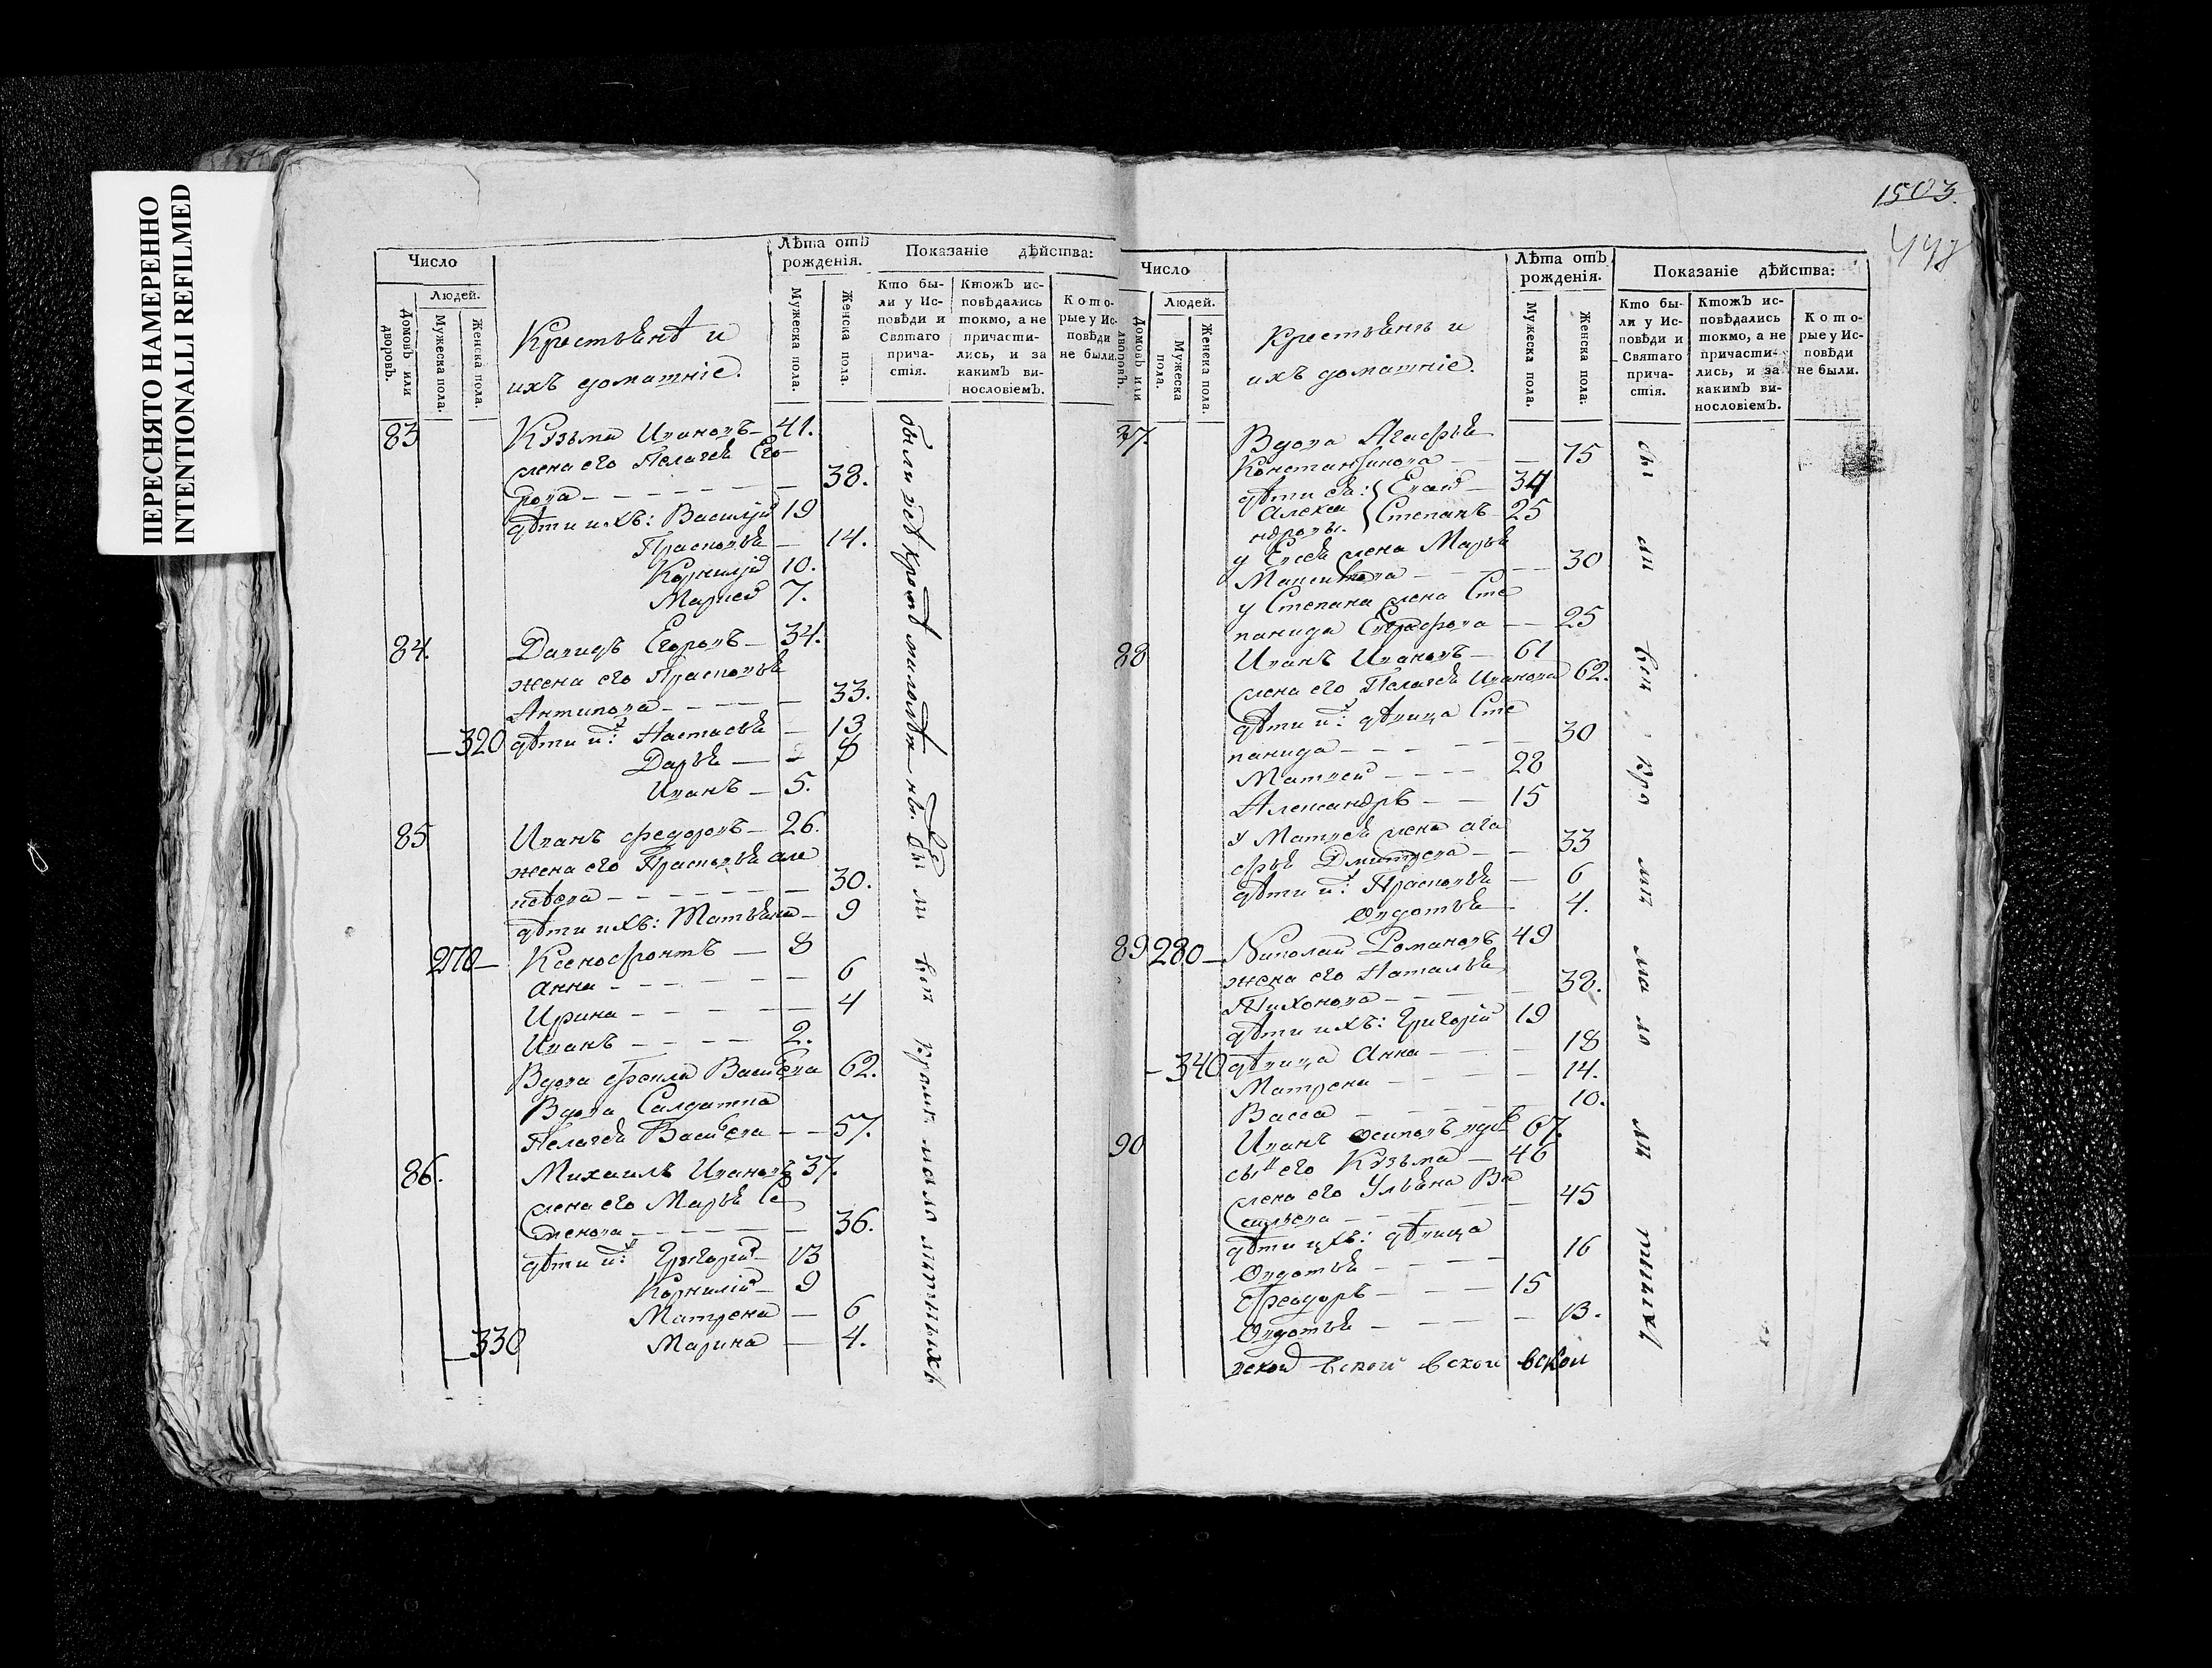 ПЕРЕСНЯТО НАМЕРЕННО
INTENTIONALLI REFILMED
1503.
Число
Людей.
Домовъ или дворовъ.
Мужеска пола.
Женска пола.
Крестьянѣ и
ихъ домашніе.
Лѣта отъ рожденія.
Мужеска пола.
Женска пола.
Показаніе дѣйства:
Кто были у Исповѣди и Святаго причастія.
Ктожъ исповѣдались токмо, а не причастились, и за какимъ винословіемъ.
Которые у Исповѣди не были.
83 Кузьма Ивановъ — 41.
жена его Пелагея Его
рова — 38.
дѣти ихъ: Василій 19
Прасковья — 14.
Корнилій 10.
Матвей 7.
84. Давидъ Егоровъ — 34.
жена его Прасковья
Антипова — 33.
—320 дѣти их: Настасья — 13
Дарья — 8
Иванъ — 5.
85 Иванъ Федоровъ — 26.
жена его Прасковья Але
ксѣева — 30.
дѣти ихъ: Татьяна — 9
270— Ксенофонтъ — 8
Анна — 6
Ирина — 4
Иванъ — 2.
Вдова Фекла Васильева 62.
Вдова Салдатка
Пелагея Васильева — 57.
86. Михаилъ Ивановъ 37.
жена его Марья Се
менова — 36.
дѣти их: Григорій — 13
Корнилій — 9
Матрена — 6
—330 Марина — 4.
были всѣ кромѣ малолѣт
бы ли всѣ кромѣ мало лѣтныхъ
Число
Людей.
Домовъ или дворовъ.
Мужеска пола.
Женска пола.
Крестьянѣ и
ихъ домашніе.
Лѣта отъ рожденія.
Мужеска пола.
Женска пола.
Показаніе дѣйства:
Кто были у Исповѣди и Святаго причастія.
Ктожъ исповѣдались токмо, а не причастились, и за какимъ винословіемъ.
Которые у Исповѣди не были.
87 Вдова Агафья
Константинова — 75
дѣти ея: Елисей — 34
Алекса
ндровы. Степанъ 25
у Елисея жена Марья
Максимова — 30
у Степана жена Сте
панида Евграфова — 25
88 Иванъ Ивановъ — 61
жена его Пелагея Иванова 62.
дѣти их: дѣвица Сте
панида — 30
Матвей — 28
Александръ — 15
у Матвея жена Ага
фья Дмитрева — 33
дѣти их: Прасковья — 6
Овдотья — 4.
89 280— Николай Романовъ 49
жена его Наталья
Тихонова — 38.
дѣти ихъ: Григорій 19
—340 дѣвица Анна — 18
Матрена — 14.
Васса — 10.
90 Иванъ Осиповъ вдов 67.
сынъ его Кузьма — 46
жена его Ульяна Ва
сильева — 45
дѣти ихъ: дѣвица
Овдотья — 16
Феодоръ — 15
Овдотья — 13.
вской вской вской вской
бы ли всѣ кро мѣ ма ло лѣ тныхъ